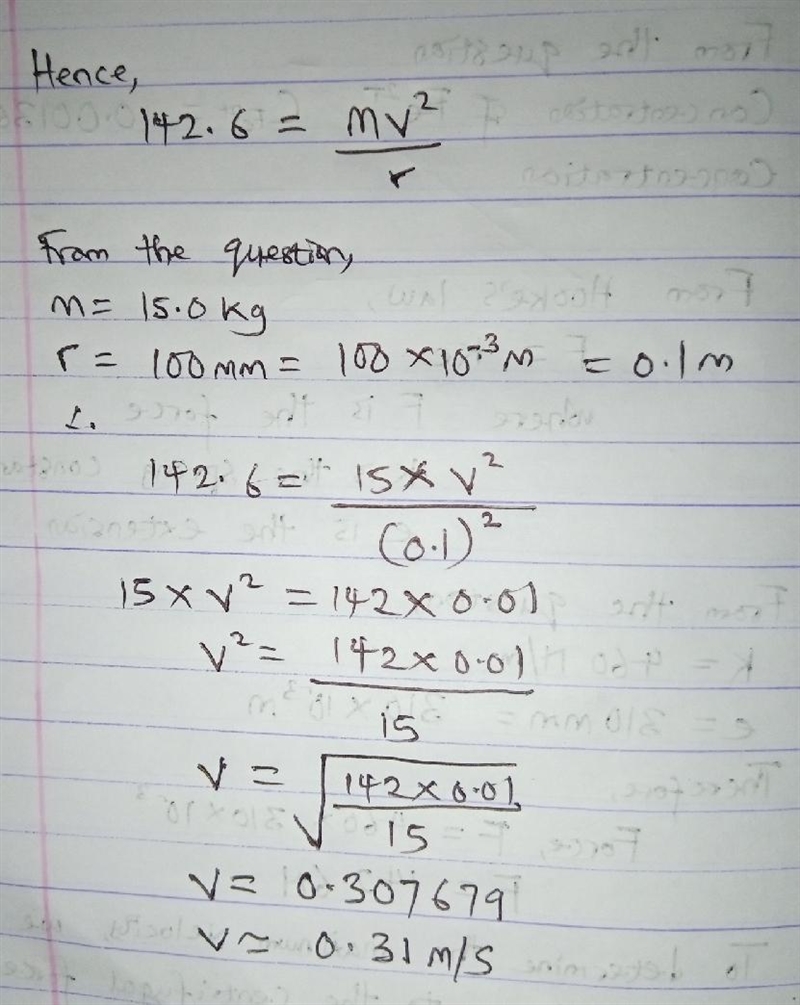 Hence,
142.6 = mv²/r
From the question,
m = 15.0 kg
r = 100 mm = 100 × 10⁻³ m = 0.1 m
142.6 = 15 × v²/(0.1)²
15 × v² = 142 × 0.01
v² = 142 × 0.01/15
v = √(142 × 0.01/15)
v = 0.307679
v ≈ 0.31 m/s